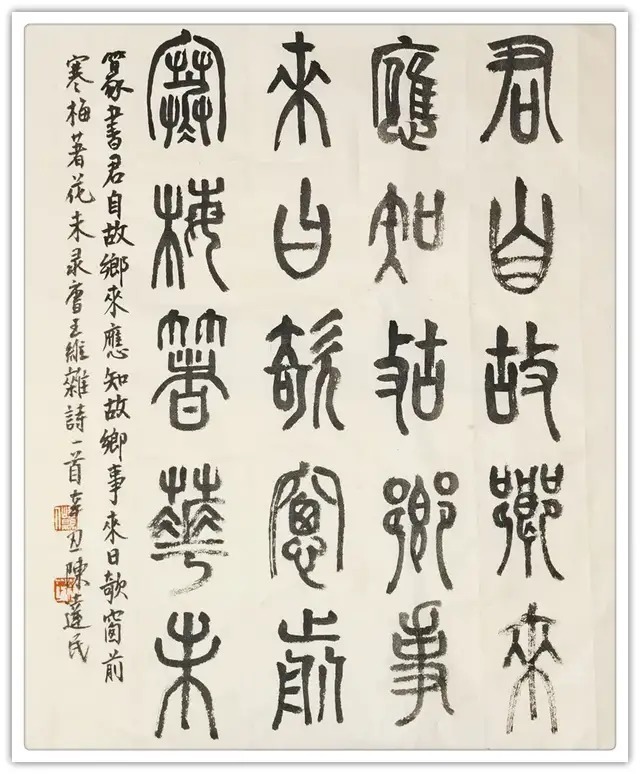 君自故鄉來
應知故鄉事
來日欹窗前
寒梅著華未
篆書君自故鄉來應知故鄉事來日欹窗前
寒梅著花未录唐王維雜詩一首辛丑陳達民